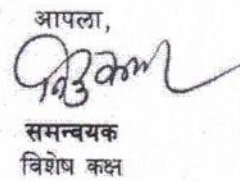 आपला,
समन्वयक
विशेष कक्ष